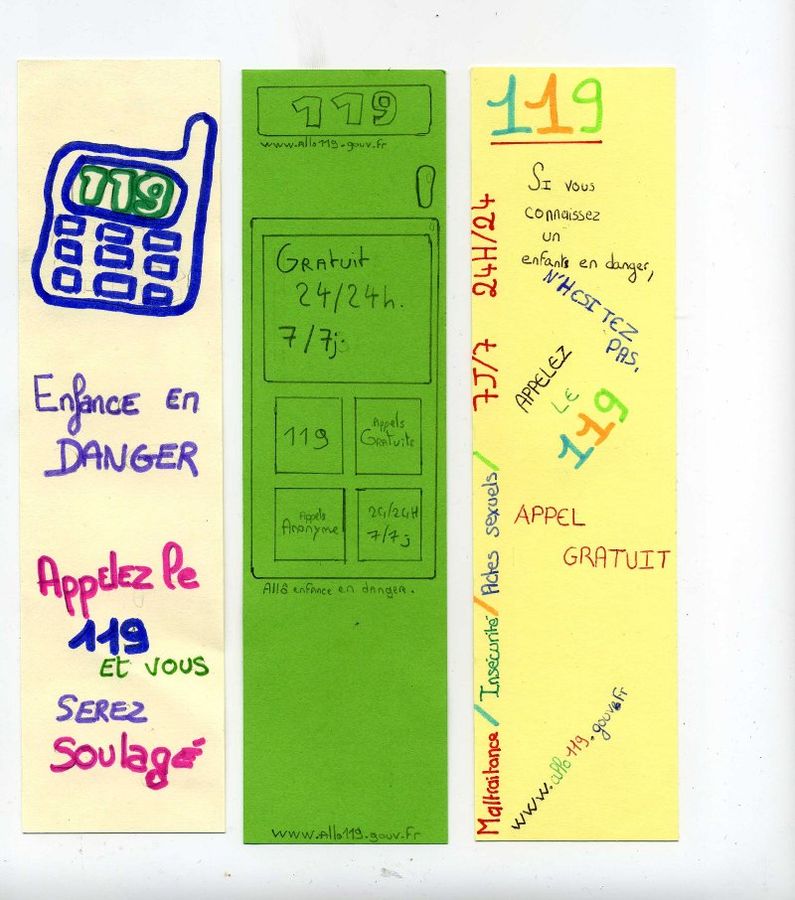 119
Enfance en
DANGER
Appelez le
119
ET VOUS
SEREZ
Soulagé
119
www.Allo119.gouv.Fr
GRATUIT
24/24h.
7/7j.
119
Appels
Gratuits
Appels
Anonyme
24/24H
7/7j
Allô enfance en danger.
www.Allo119.gouv.Fr
119
SI vous
connaissez
un
enfants en danger,
N'HESITEZ
PAS,
APPELEZ
LE
119
APPEL
GRATUIT
Maltraitance / Insécurité / Actes sexuels / 7J/7 24H/24
www.allo119.gouv.Fr